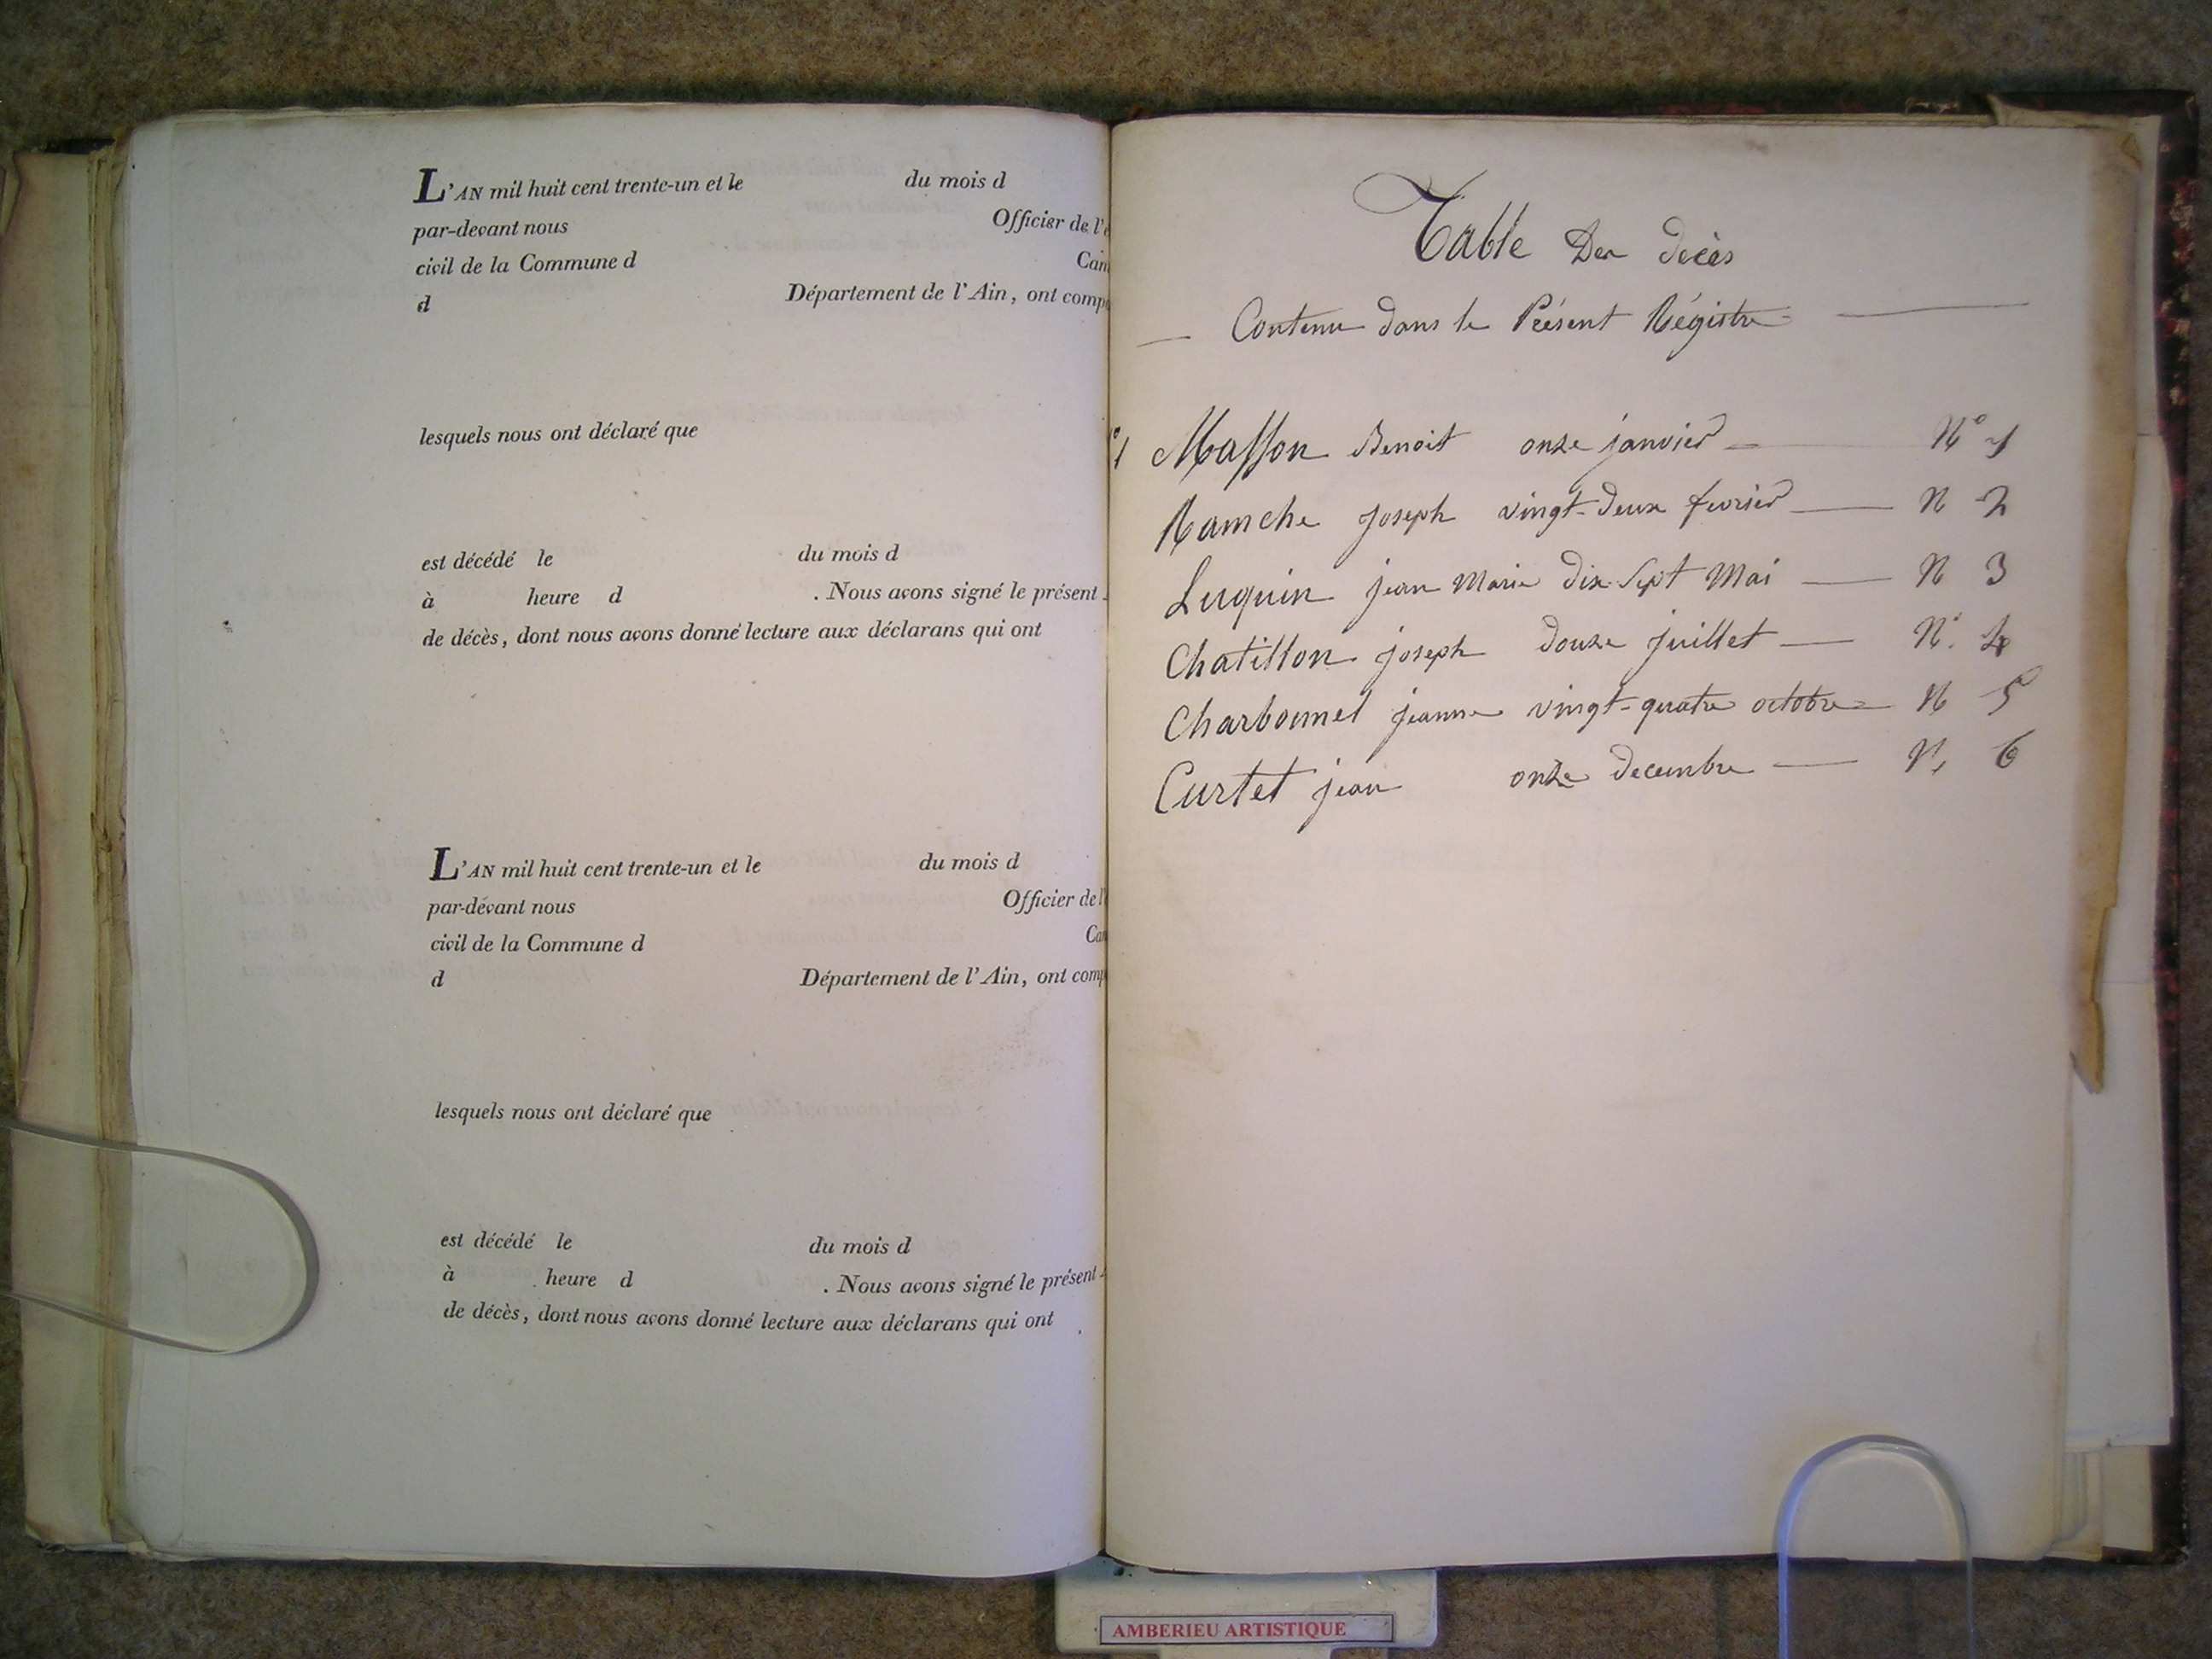 L'AN mil huit cent trente-un et le du mois d
par-devant nous Officier de l'
civil de la Commune d Can
d Département de l'Ain, ont comp
lesquels nous ont déclaré que
est décédé le du mois d
à heure d . Nous avons signé le présent
de décès, dont nous avons donné lecture aux déclarans qui ont
L'AN mil huit cent trente-un et le du mois d
par-dévant nous Officier de l'
civil de la Commune d Can
d Département de l'Ain, ont comp
lesquels nous ont déclaré que
est décédé le du mois d
à heure d . Nous avons signé le présent
de décès, dont nous avons donné lecture aux déclarans qui ont
Table Des décès
— Contenu dans le Présent Régistre —
Masson Benoit onze janvier — N° 1
Ramche joseph vingt-deux fevrier — N 2
Luquin jean Marie dix Sept Mai — N 3
Chatillon joseph douze juillet — N° 4
Charbonnel jeanne vingt-quatre octobre N 5
Curtet jean onze decembre — N. 6
AMBERIEU ARTISTIQUE